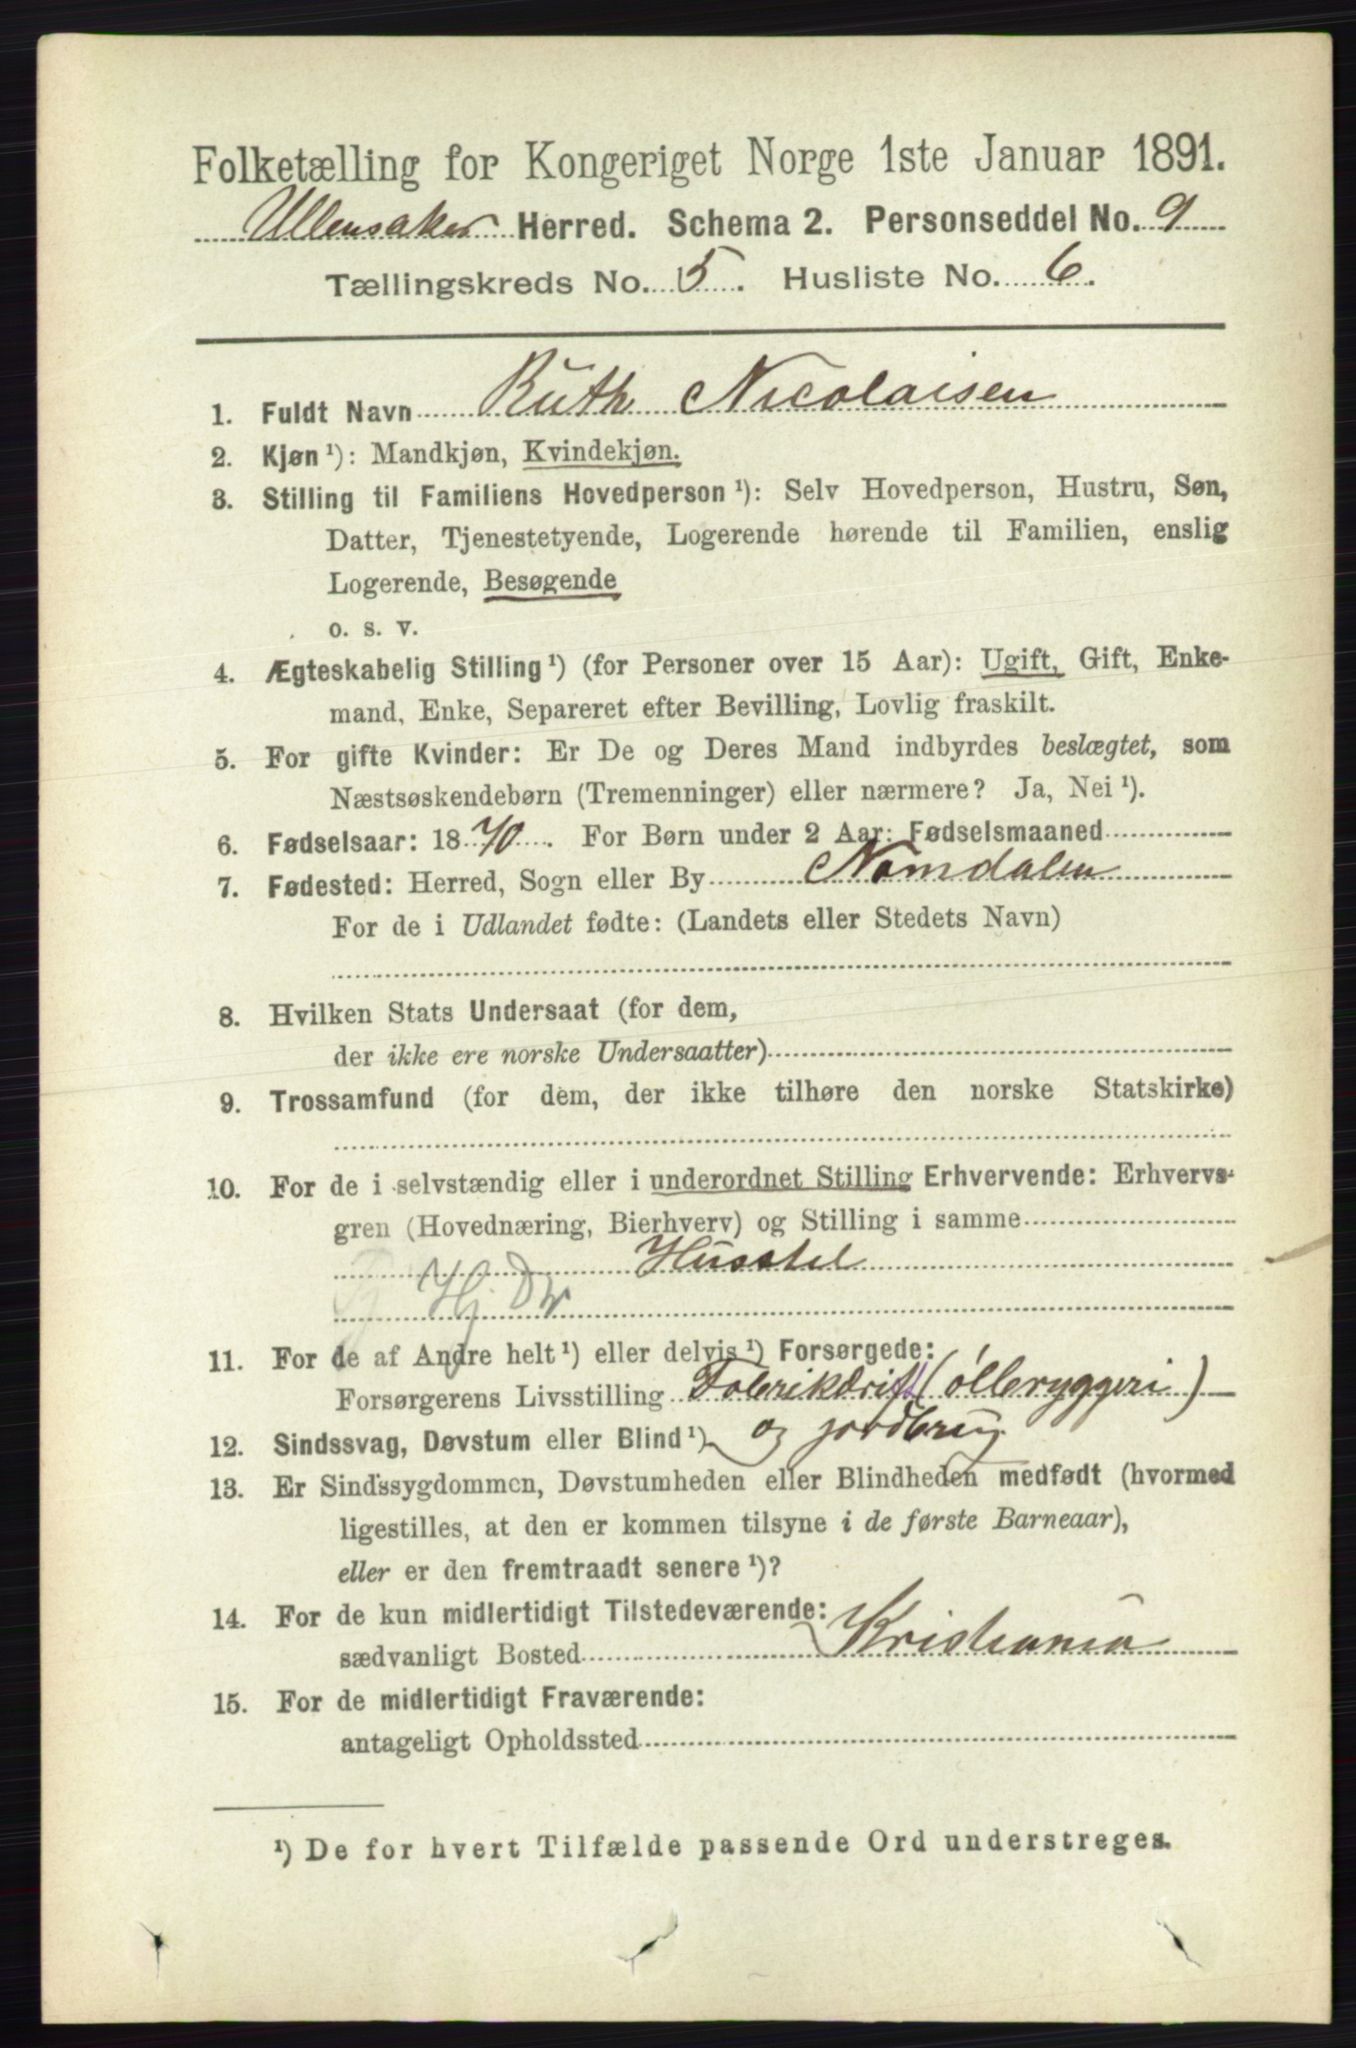 Folketælling for Kongeriget Norge 1ste Januar 1891.
Ullensaker Herred. Schema 2. Personseddel No. 9
Tællingskreds No. 5. Husliste No. 6.
1. Fuldt Navn Ruth Nicolaisen
2. Kjøn ¹): Mandkjøn, Kvindekjøn.
3. Stilling til Familiens Hovedperson ¹): Selv Hovedperson, Hustru, Søn,
Datter, Tjenestetyende, Logerende hørende til Familien, enslig
Logerende, Besøgende
o. s. v.
4. Ægteskabelig Stilling ¹) (for Personer over 15 Aar): Ugift, Gift, Enke-
mand, Enke, Separeret efter Bevilling, Lovlig fraskilt.
5. For gifte Kvinder: Er De og Deres Mand indbyrdes beslægtet, som
Næstsøskendebørn (Tremenninger) eller nærmere? Ja, Nei ¹).
6. Fødselsaar: 1870. For Børn under 2 Aar: Fødselsmaaned
7. Fødested: Herred, Sogn eller By Namdalen
For de i Udlandet fødte: (Landets eller Stedets Navn)
8. Hvilken Stats Undersaat (for dem,
der ikke ere norske Undersaatter)
9. Trossamfund (for dem, der ikke tilhøre den norske Statskirke)
10. For de i selvstændig eller i underordnet Stilling Erhvervende: Erhvervs-
gren (Hovednæring, Bierhverv) og Stilling i samme
Husstel
Hj. Dr
11. For de af Andre helt ¹) eller delvis ¹) Forsørgede:
Forsørgerens Livsstilling Fabrikdrift (ølbryggeri)
12. Sindssvag, Døvstum eller Blind ¹) og jordbrug
13. Er Sindssygdommen, Døvstumheden eller Blindheden medfødt (hvormed
ligestilles, at den er kommen tilsyne i de første Barneaar),
eller er den fremtraadt senere ¹)?
14. For de kun midlertidigt Tilstedeværende:
sædvanligt Bosted Kristiania
15. For de midlertidigt Fraværende:
antageligt Opholdssted
¹) De for hvert Tilfælde passende Ord understreges.